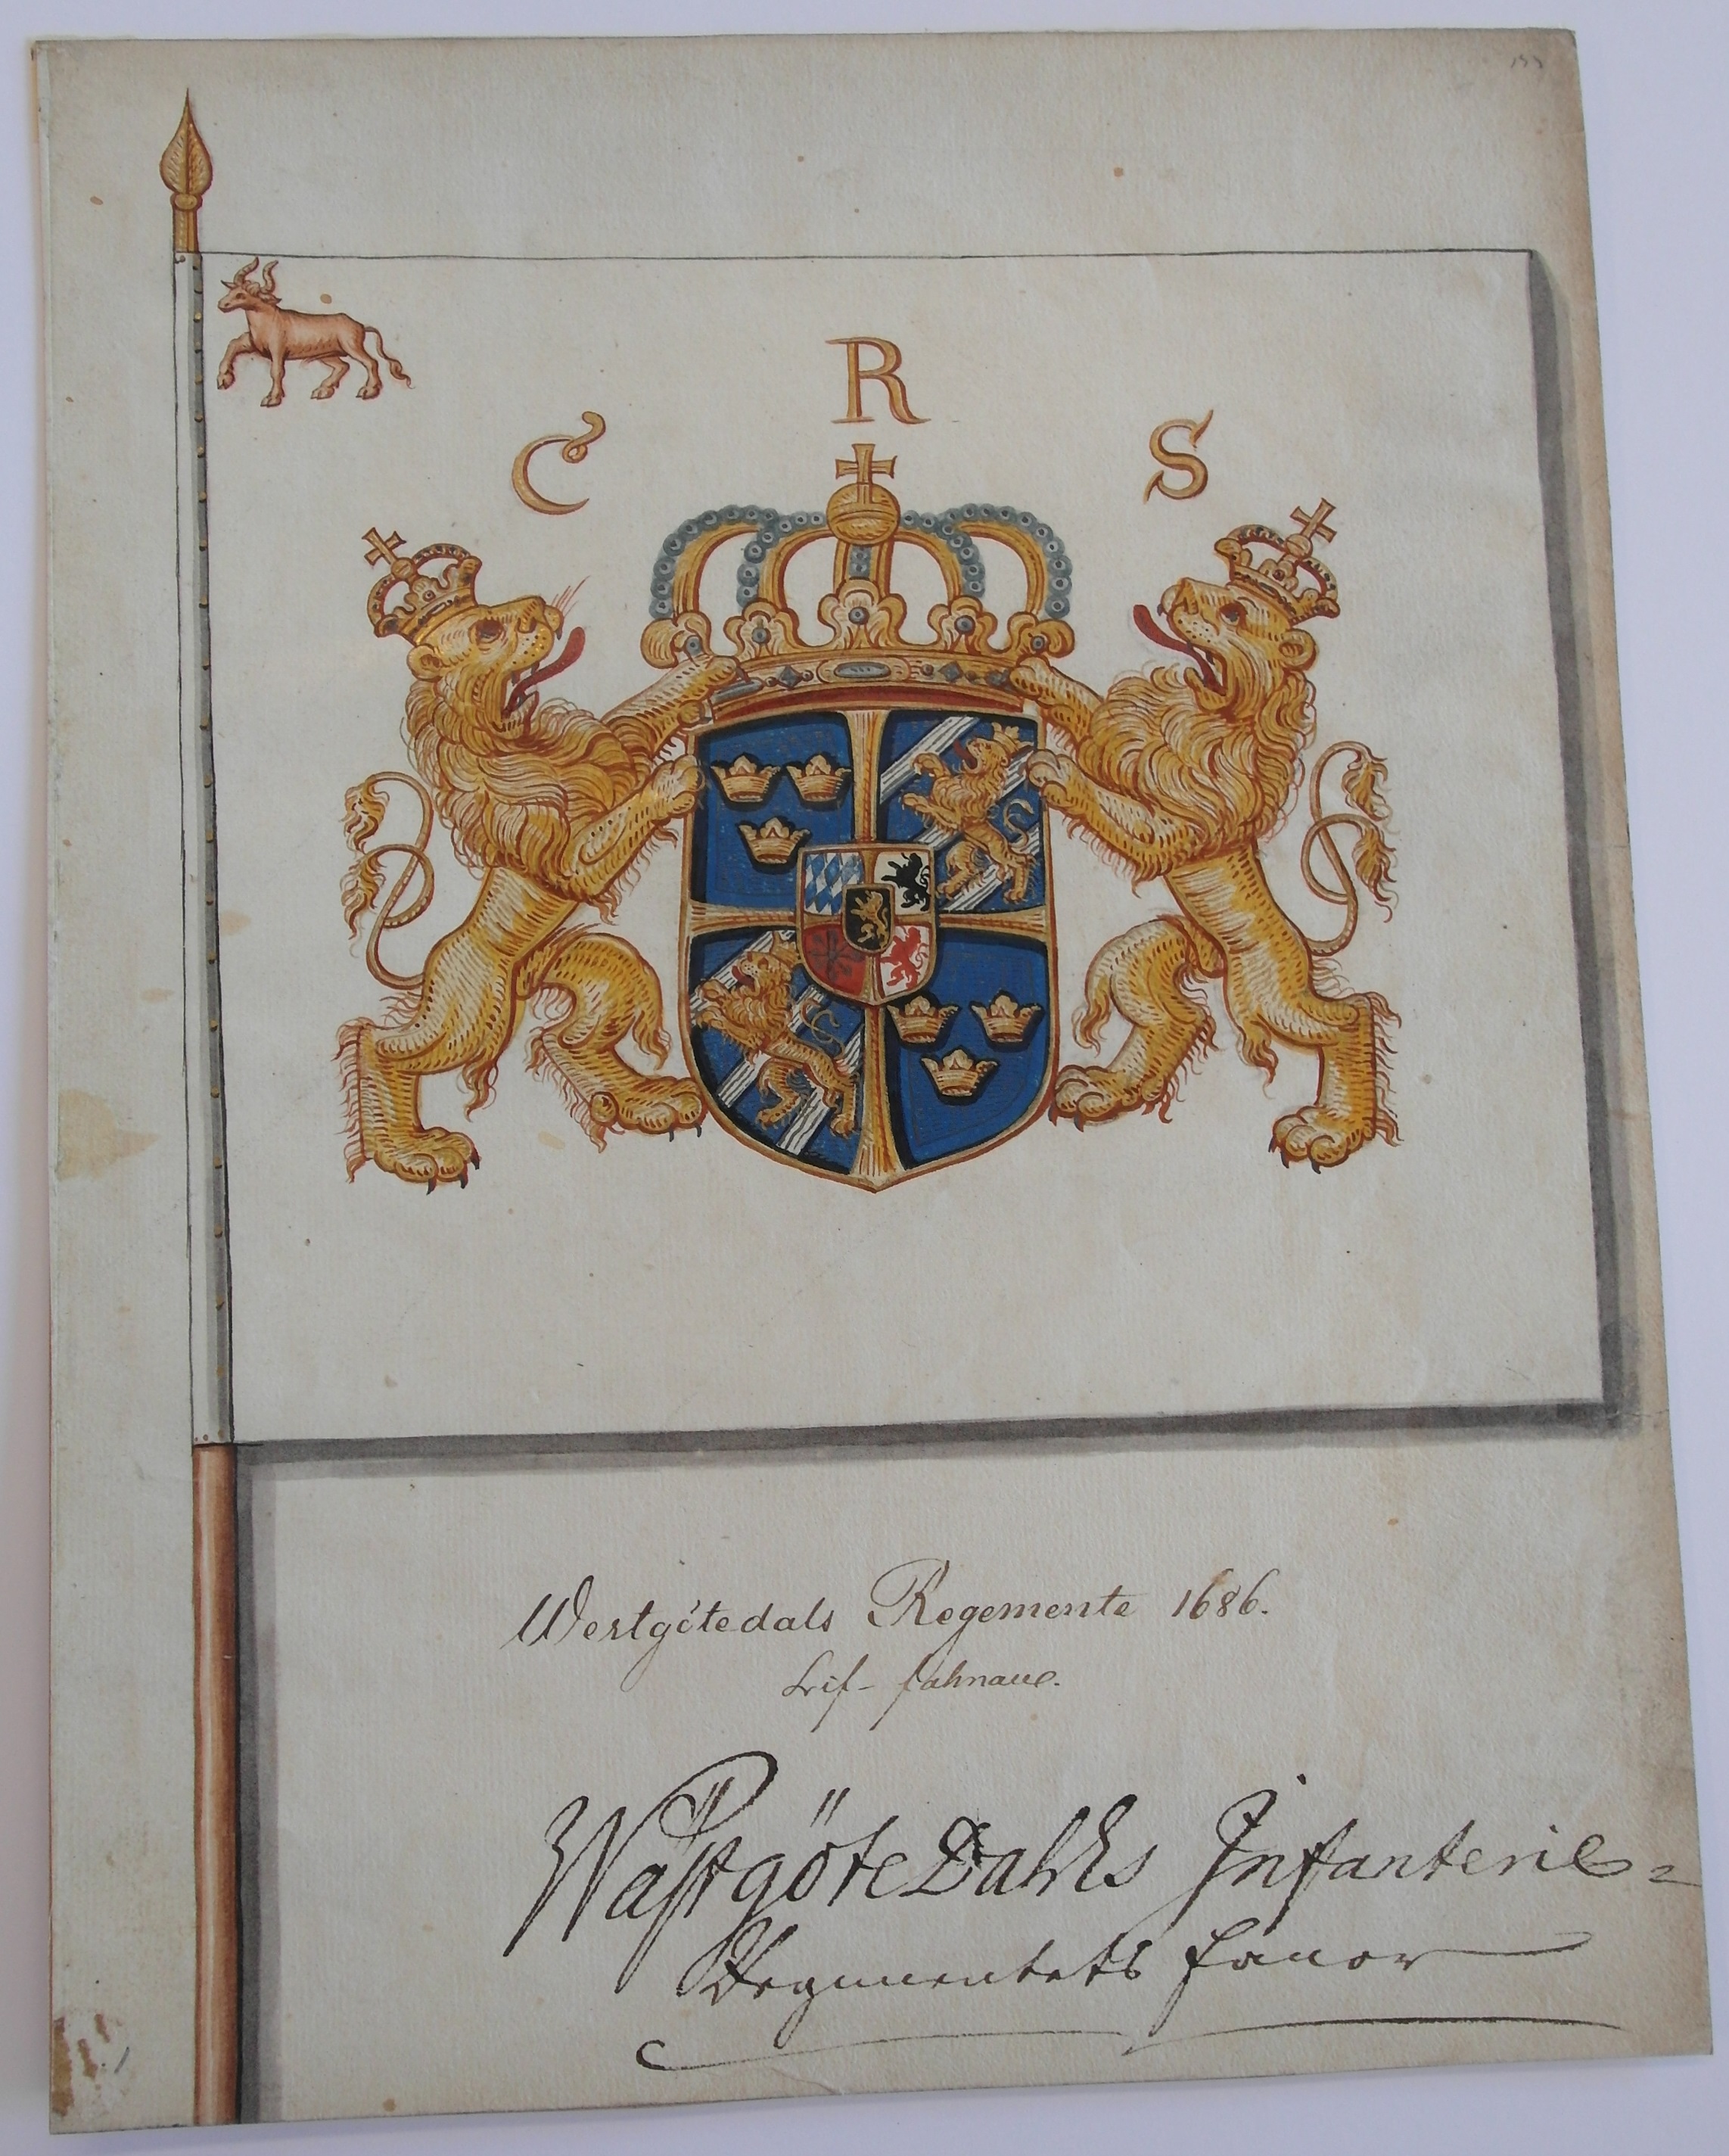 C R S
Westgötedals Regemente 1686.
Lif-fahnane.
WästgöteDahls Infanterie=
Regimentets fanor